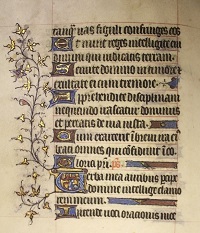 tanqͥ vas figuli confringes eos
Et nunc reges intelligite eru
dimini qui iudicatis terram
Seruite domino in timore et
exultate ei cum tremore
Apprehendite disciplinam
nequando irascatur dominus
et pereatis de via iusta
Cum exarserit in breui ira ei
beati omnes qui confidunt in eo
Gloria pri ps
Verba mea auribus percipe
domine intellige clamo
rem meum
Intende voci orationis mee